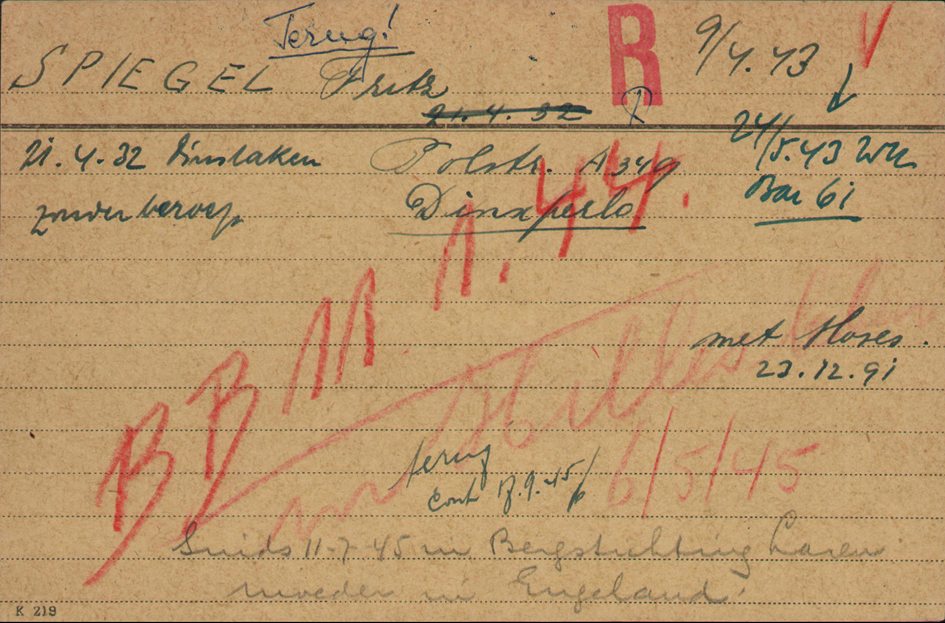 Terug!
R
9/4.43
V
SPIEGEL Fritz
21.4.32
21.4.32 Dinslaken
Polstr. A349
24/5.43 WK
zonder beroep
Dinxperlo
Bar 61
BB 11 1.44.
met Moses.
23.12.91
terug
Cont 17.9.45
6/5/45
Sinds 11-7-45 in Bergstichting Laren
moeder in Engeland.
K 219